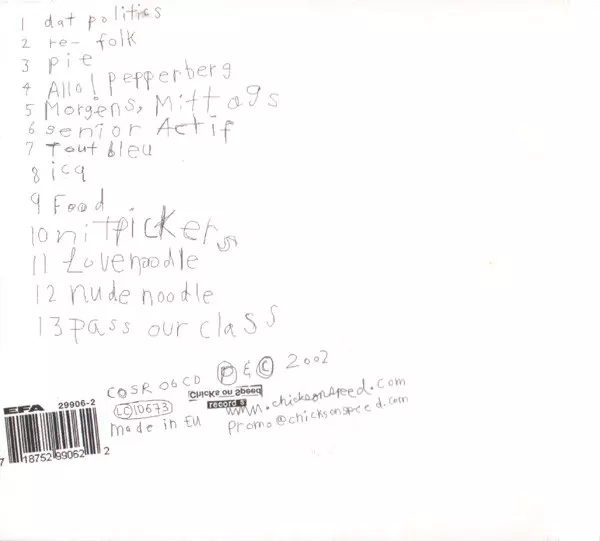 1 dat politics
2 re- folk
3 pie
4 Allo! pepperberg
5 Morgens, Mittags
6 senior Actif
7 Tout bleu
8 icq
9 Food
10 nitpickers
11 Lovenoodle
12 nude noodle
13 pass our class
COSR 06 CD P & C 2002
EFA 29906-2
LC 10673 Chicks on Speed records www.chicksonspeed.com
made in EU promo@chicksonspeed.com
7 18752 99062 2